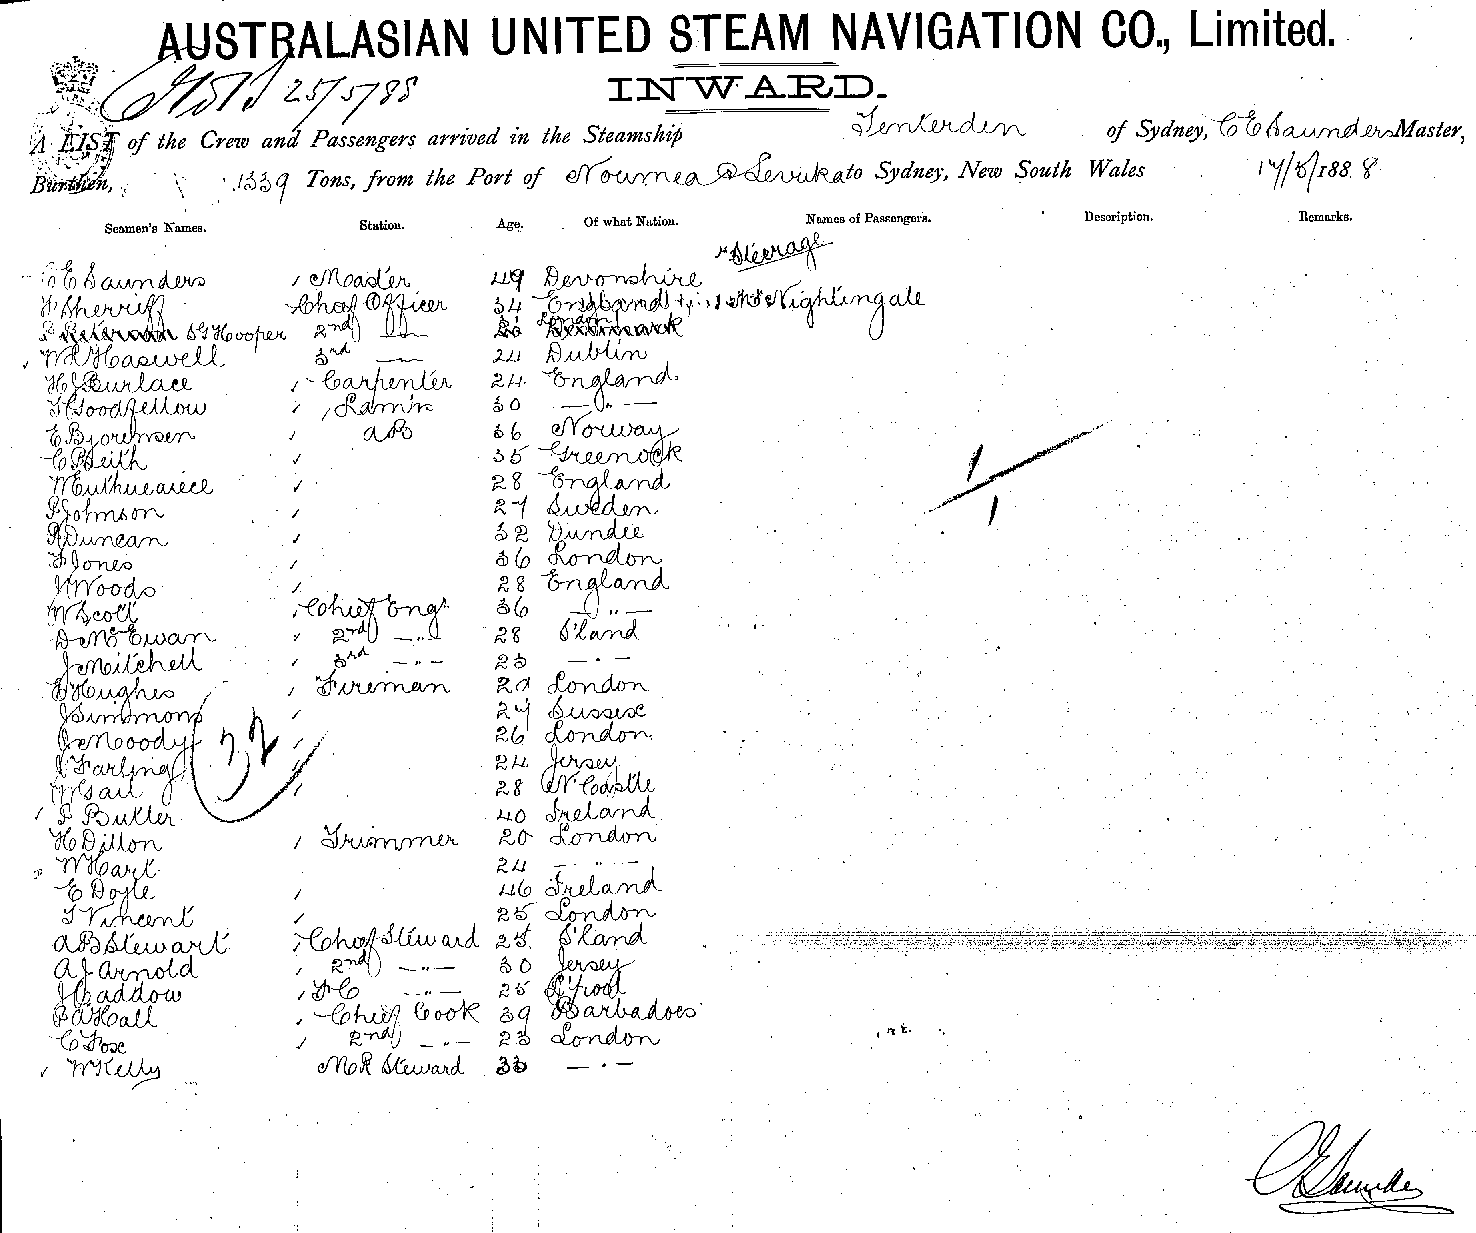 AUSTRALASIAN UNITED STEAM NAVIGATION CO., Limited.
25/5/88 INWARD.
A LIST of the Crew and Passengers arrived in the Steamship Tenterden of Sydney, C E Saunders Master,
Burthen, 1339 Tons, from the Port of Noumea & Levuka to Sydney, New South Wales 17/5/1888
Seamen's Names. Station. Age. Of what Nation. Names of Passengers. Description. Remarks.
Steerage
C E Saunders Master 49 Devonshire
W Sherriff Chief Officer 34 England Nightingale
S G Hooper 2nd do London
W R Haswell 3rd — 24 Dublin
H J Burlace Carpenter 24 England
T Goodfellow Lam'r 30 — " —
E Bjorensen AB 36 Norway
C Beith 35 Greenock
28 England
P Johnson 27 Sweden
R Duncan 32 Dundee
F Jones 36 London
J Woods 28 England
W Scott Chief Engr 36 — " —
D McEwan 2nd — " — 28 S'land
J Mitchell 3rd — " — 23 — " —
Hughes Fireman 29 London
J Simmons 27 Sussex
J Moody 26 London
Farling 24 Jersey
W Gail 28 N Castle
P Butler 40 Ireland
H Dillon Trimmer 20 London
W Hart 24 — " —
E Doyle 46 Ireland
T Vincent 25 London
A B Stewart Chief Steward 25 S'land
A J Arnold 2nd — " — 30 Jersey
J Caddow F C — " — 25 L'pool
P A Hall Chief Cook 39 Barbadoes
C Fox 2nd — " — 23 London
W Kelly M R Steward 33 — " —
32
1/1
C E Saunders